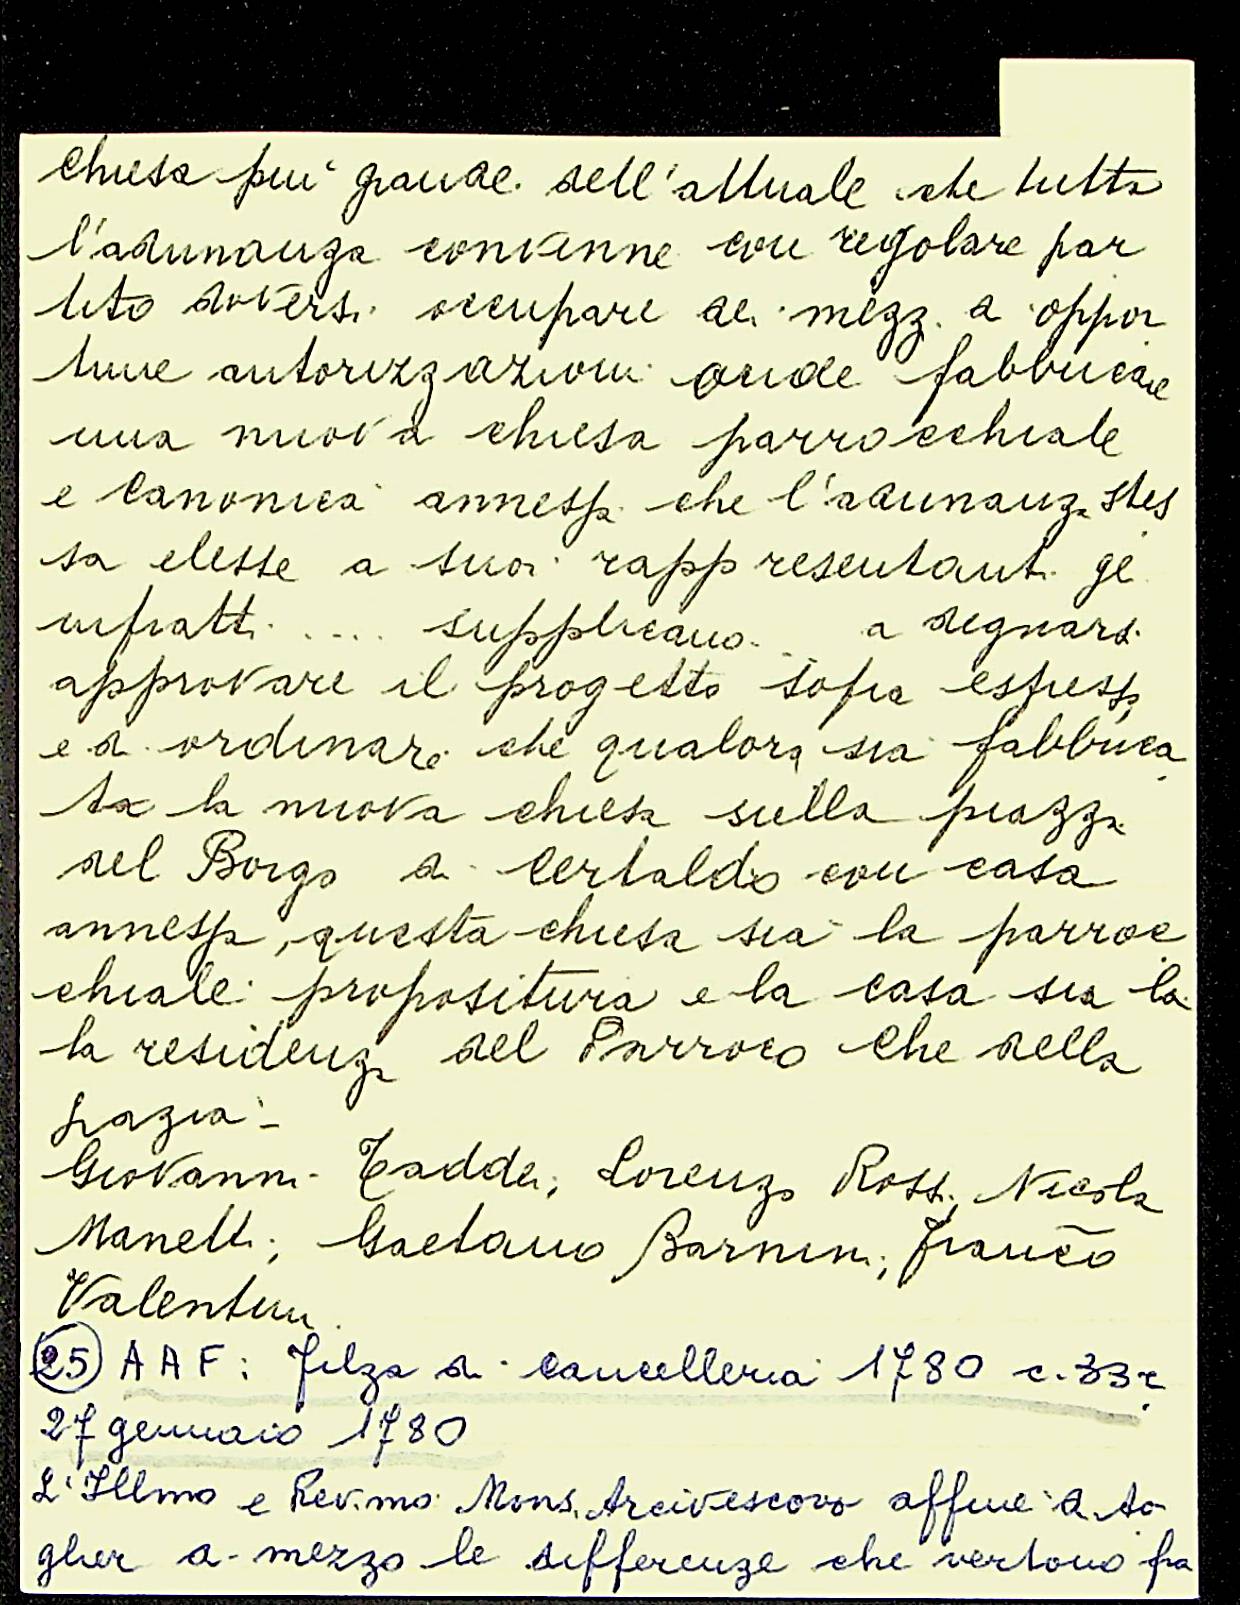 chiesa piu' grande dell'attuale che tutta
l'adunanza convenne con regolare par
tito doversi occupare dei mezzi a oppor
tune autorizzazioni onde fabbricare
una nuova chiesa parrocchiale
e canonica annessa che l'adunanza stes
sa elesse a suoi rappresentanti gl'
infratti .... supplicano ... a degnarsi
approvare il progetto sopra espresso,
ed ordinare che qualora sia fabbrica
ta la nuova chiesa sulla piazza
del Borgo di Certaldo con casa
annessa, questa chiesa sia la parroc
chiale propositura e la casa sia la
la residenza del Parroco che della
grazia -
Giovanni Taddei, Lorenzo Rossi, Nicola
Manetti; Gaetano Barnini; Franco
Valentini.
25 AAF: Filza di cancelleria 1780 c. 33r
27 gennaio 1780
L'Illmo e Rev.mo Mons. Arcivescovo affine di to
glier di mezzo le differenze che vertono fra